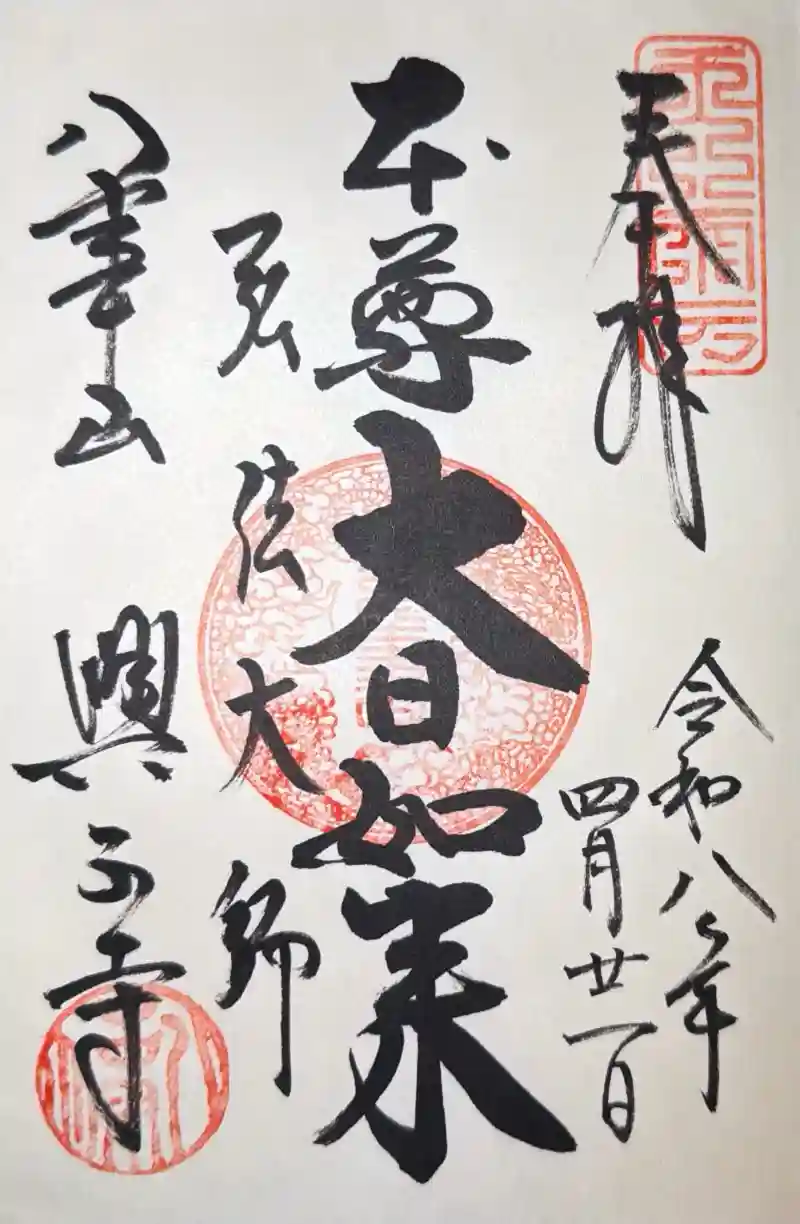 奉拝
令和八年
四月廿一日
本尊大日如来
弘法大師
八事山
興正寺